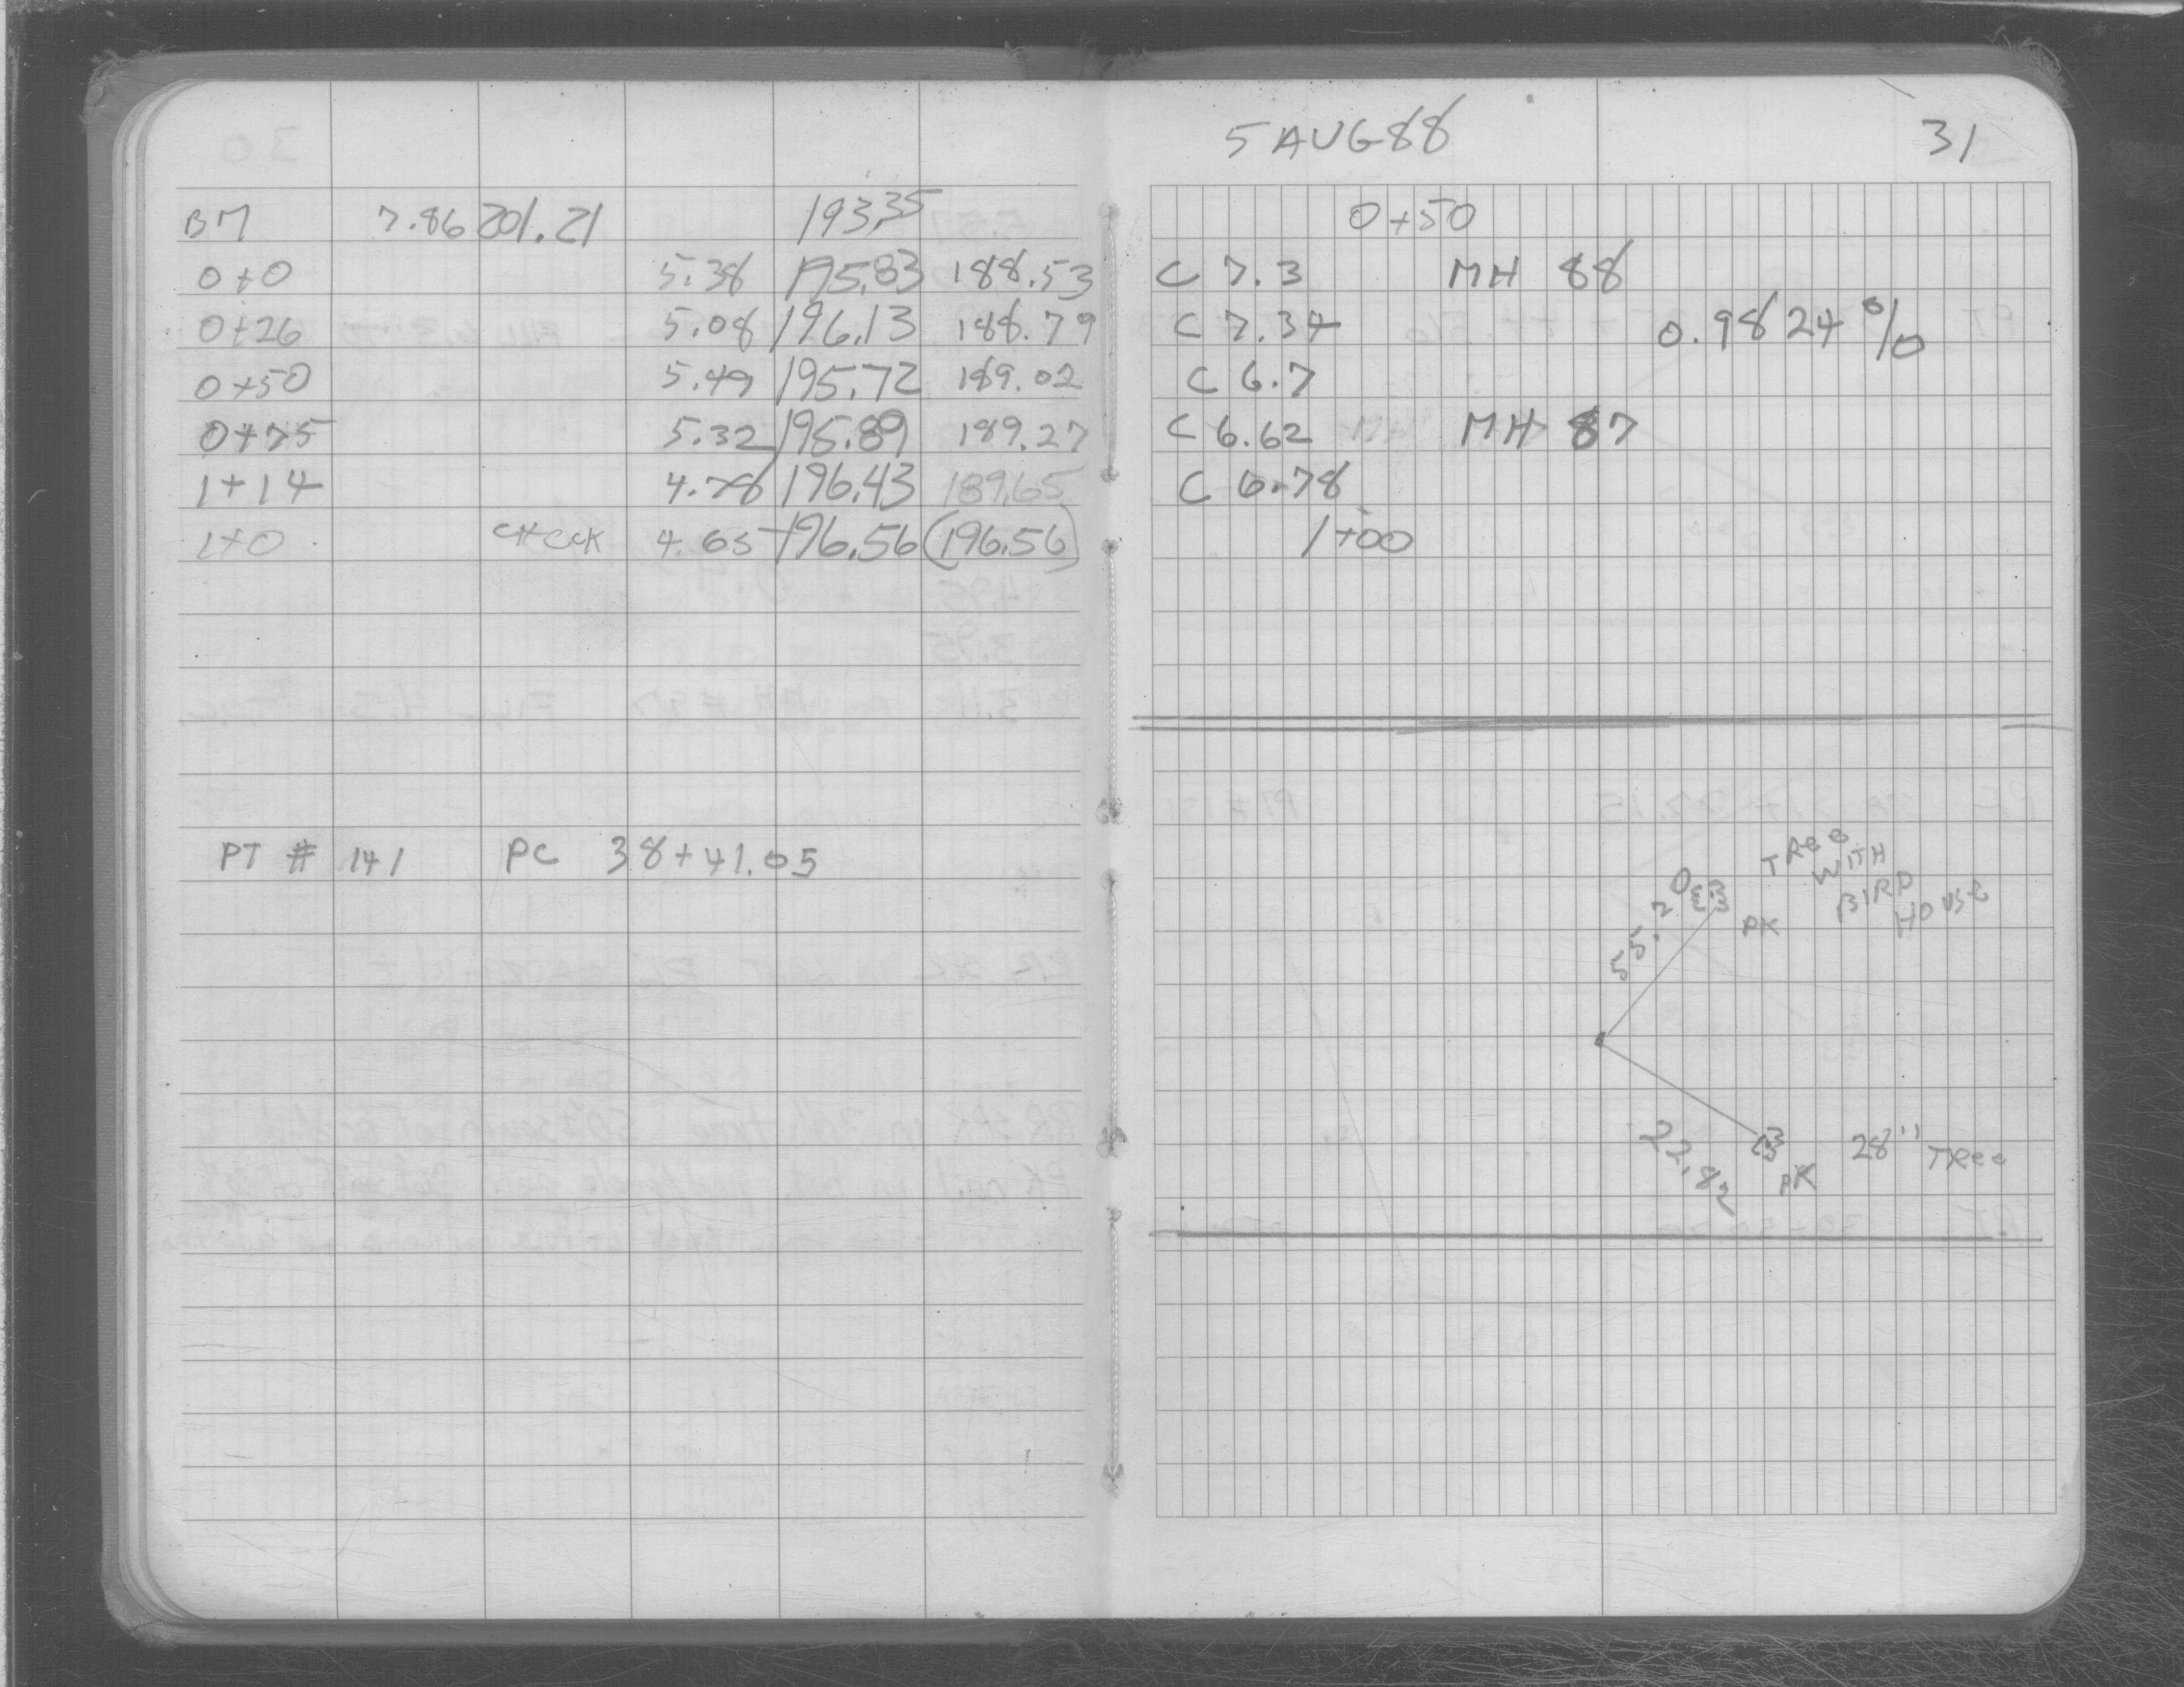 5 AUG 88 31
BM 7.86 201.21 193.35 0+50
0+0 5.38 195.83 188.53 C 7.3 MH 88
0+26 5.08 196.13 188.79 C 7.34 0.9824 %
0+50 5.49 195.72 189.02 C 6.7
0+75 5.32 195.89 189.27 C 6.62 MH 87
1+14 4.78 196.43 189.65 C 6.78
1+0 CHECK 4.65 196.56 (196.56) 1+00
PT # 141 PC 38+41.05
TRee
WITH
BIRD
HOUSE
55.20
PK
22.82
PK
28" TRee